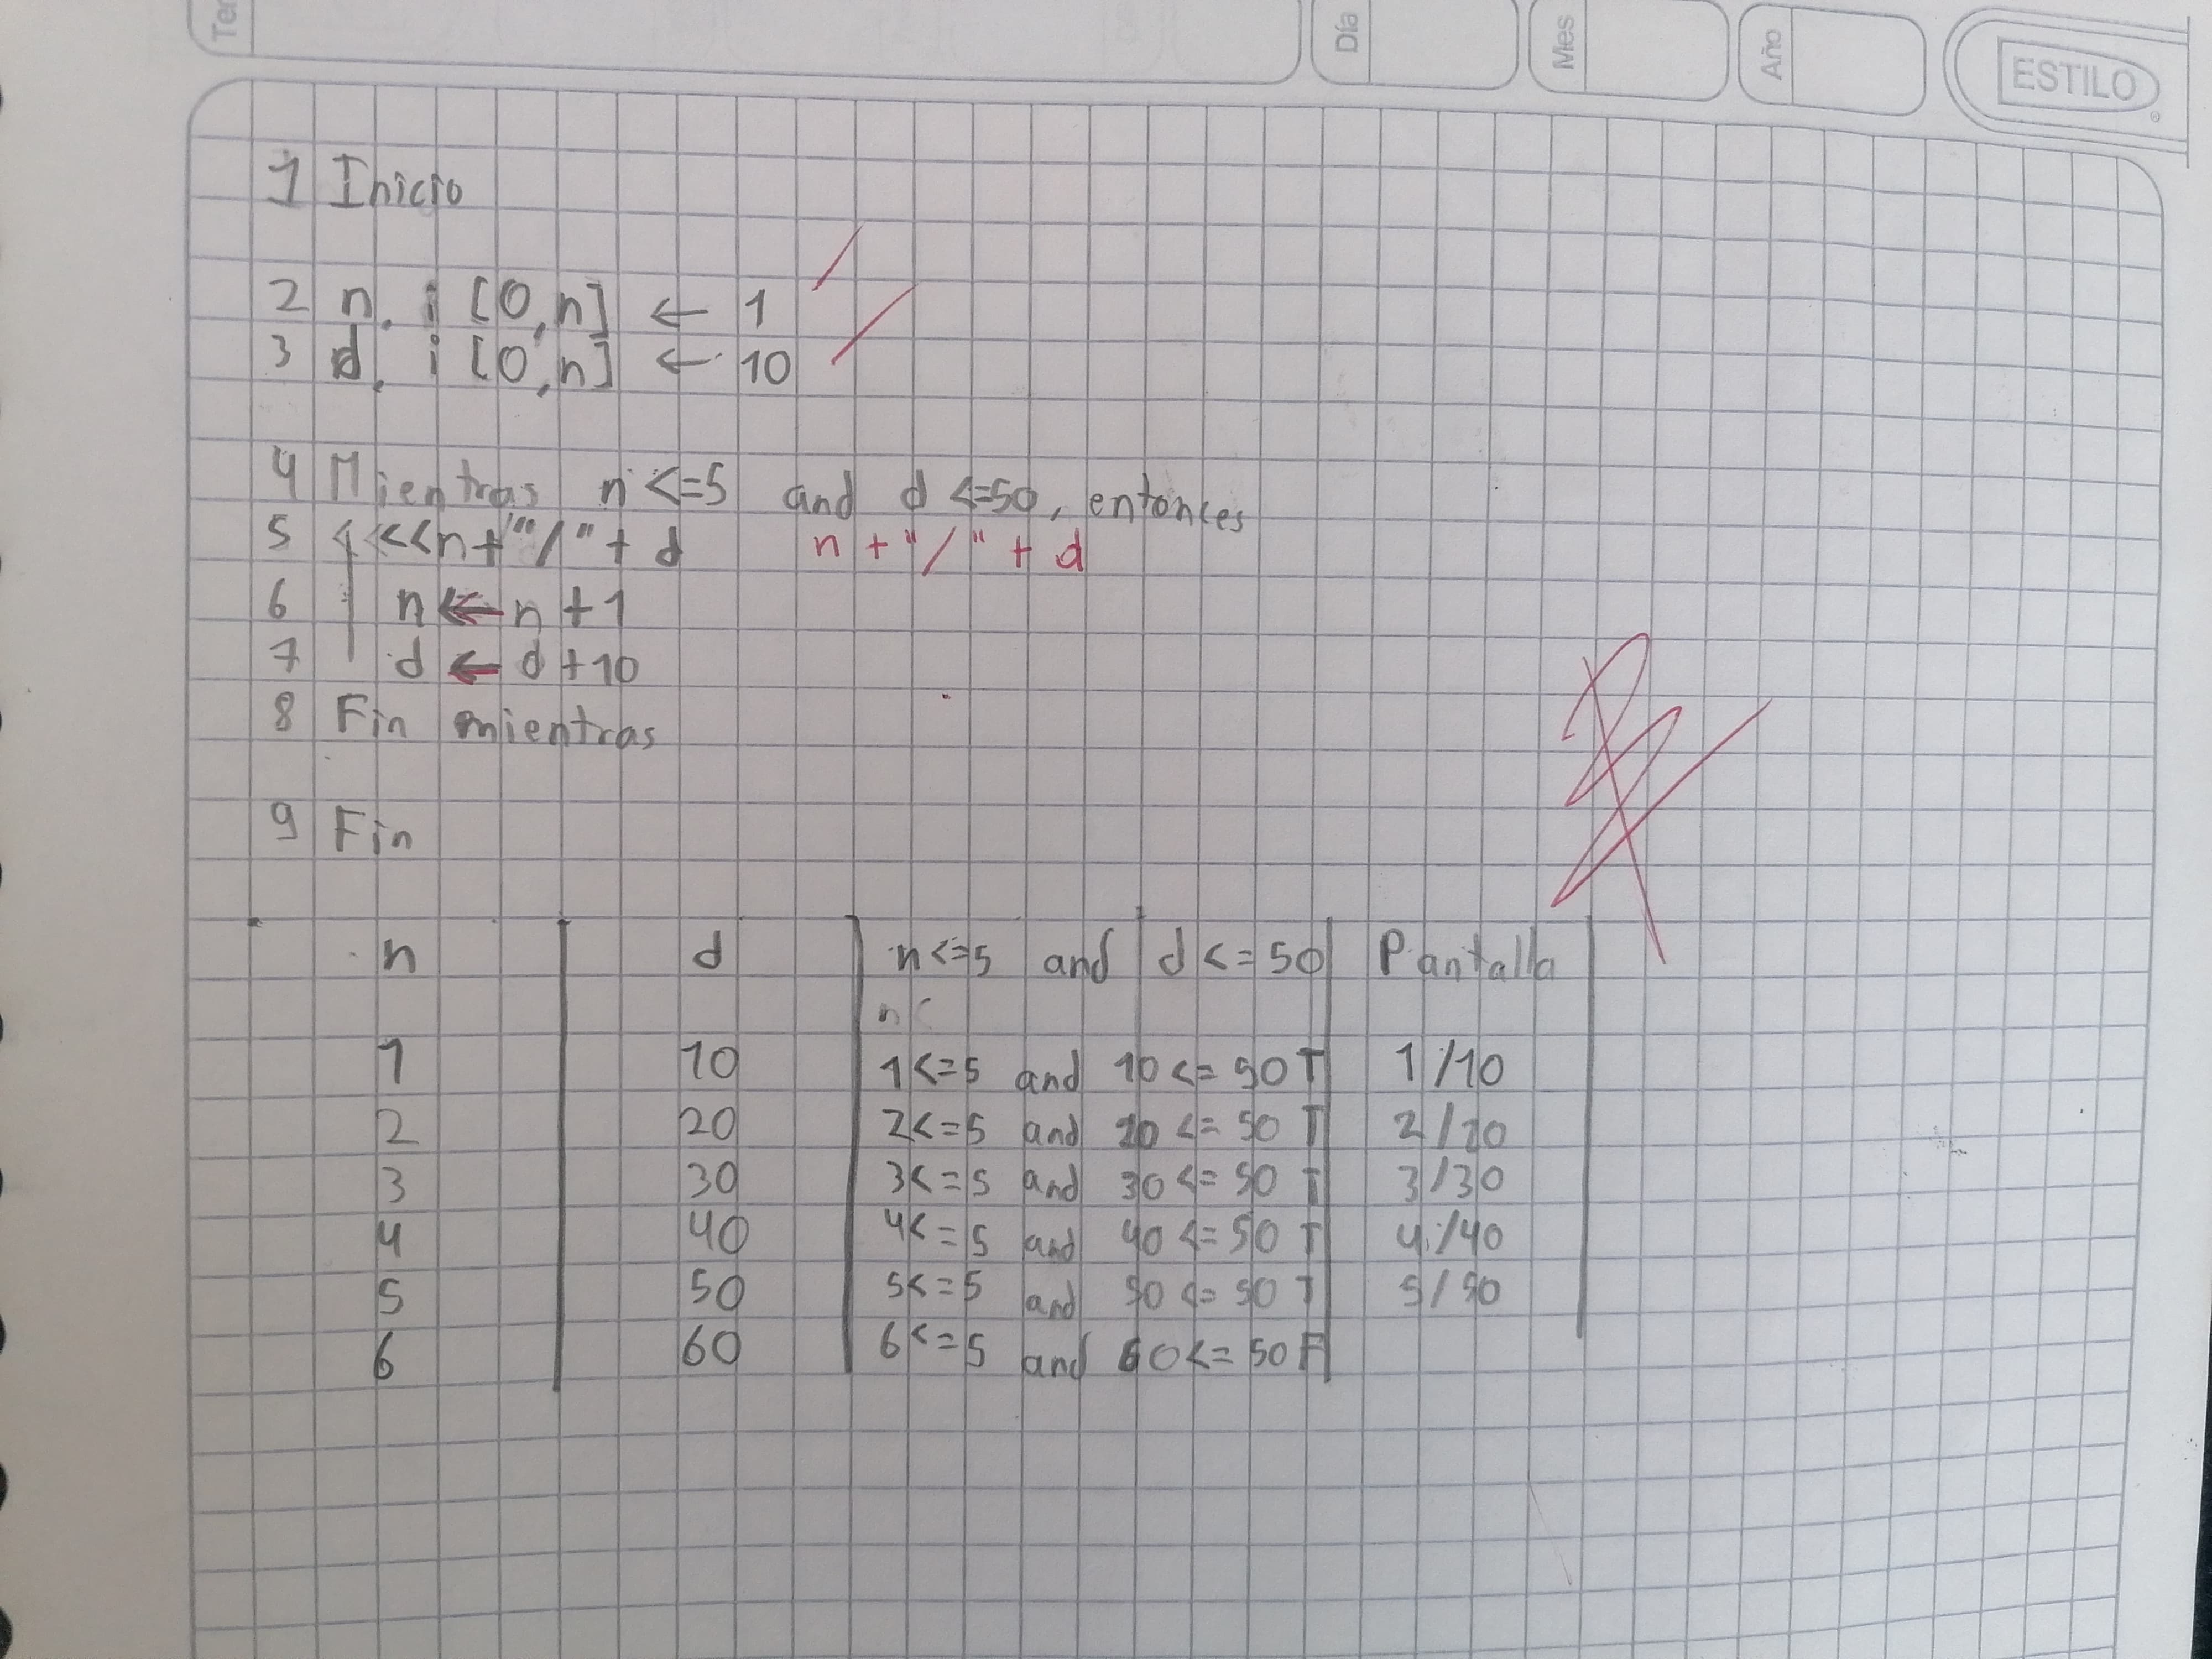 Ter
Día
Mes
Año
ESTILO
1 Inicio
2 n, i [0,n] ← 1
3 d, i [0,n] ← 10
4 Mientras n <=5 and d <=50, entonces
5 <<n+"/"+ d n +"/" + d
6 n ← n +1
7 d ← d +10
8 Fin mientras
9 Fin
n d n<=5 and d<=50 Pantalla
n<
1 10 1<=5 and 10<=50 T 1/10
2 20 2<=5 and 20<=50 T 2/20
3 30 3<=5 and 30<=50 T 3/30
4 40 4<=5 and 40<=50 T 4/40
5 50 5<=5 and 50<=50 T 5/50
6 60 6<=5 and 60<=50 F